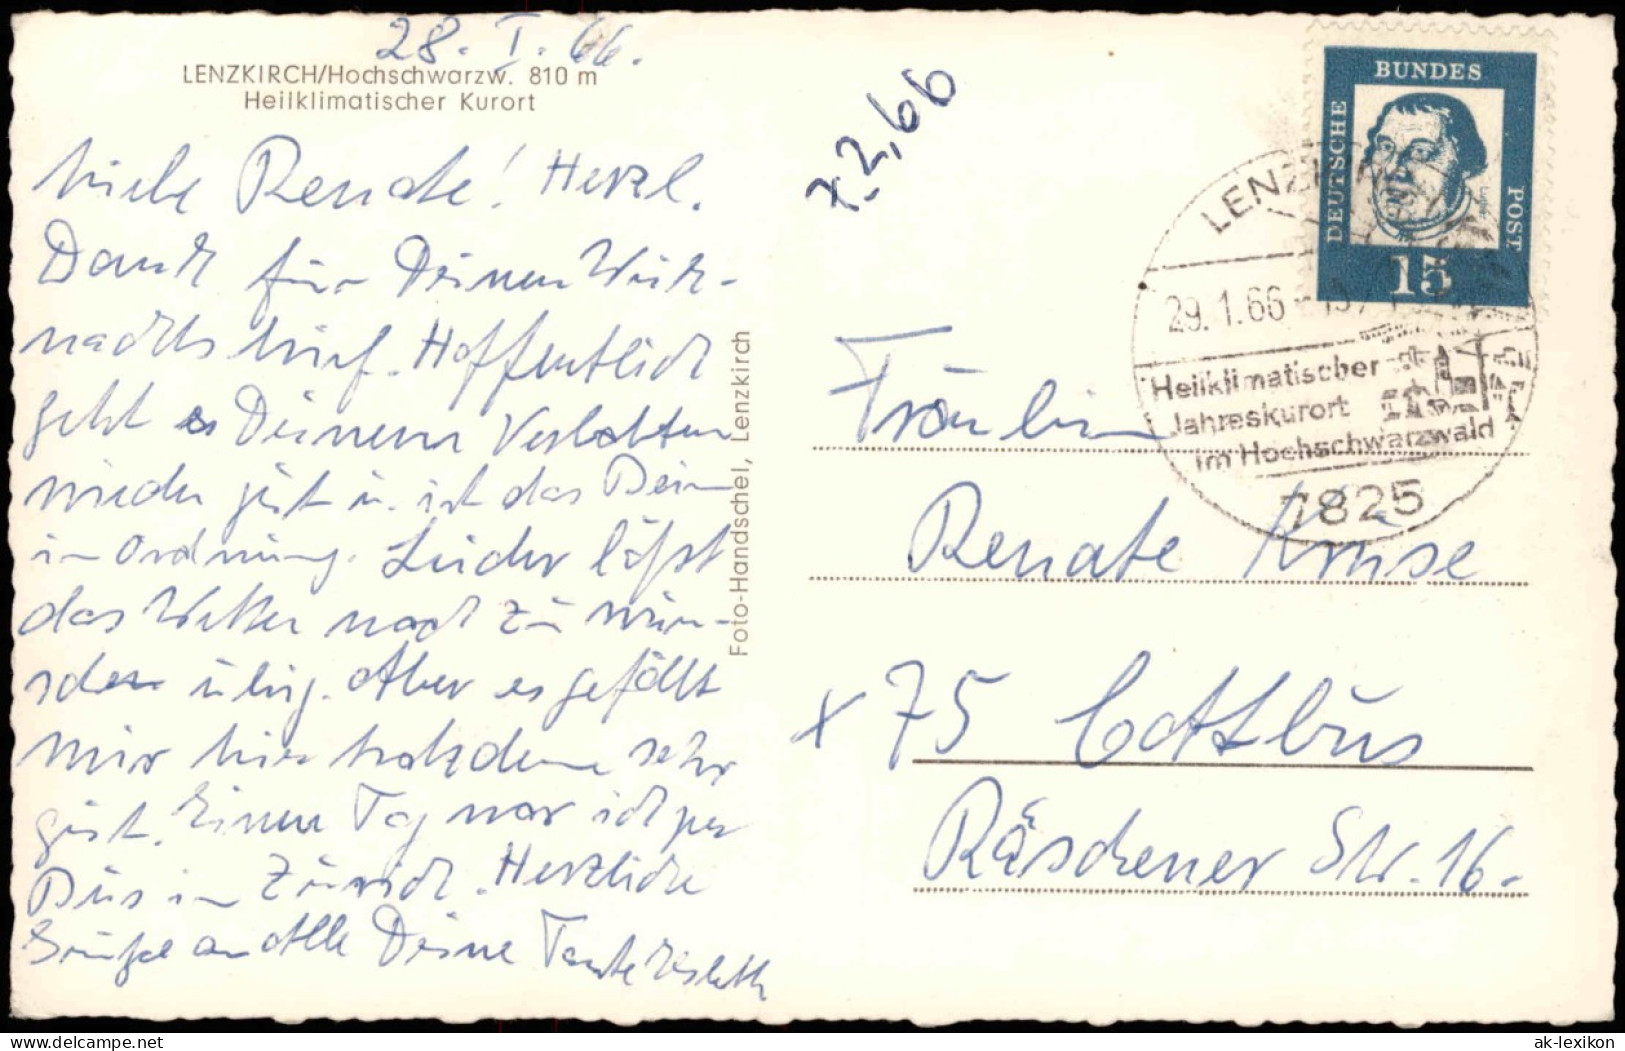 28. I. 66.
LENZKIRCH/Hochschwarzw. 810 m
Heilklimatischer Kurort
Liebe Renate! Herzl.
Dank für Deinen Weih-
nachtsbrief. Hoffentlich
geht es Deinem
wieder gut u. ist das Bein
in Ordnung. Leider läßt
das Wetter noch zu wün-
schen übrig. Aber es gefällt
mir hier trotzdem sehr
gut. Einen Tag war ich per
Bus in Zürich. Herzliche
Grüße an Alle Deine Tante Elsbeth
Foto-Handschel, Lenzkirch
7.2,66
DEUTSCHE BUNDES POST
15
LENZKIRCH
29.1.66
Heilklimatischer
Jahreskurort
im Hochschwarzwald
7825
Fräulein
Renate Kruse
x 75 Cottbus
Räschener Str. 16.
www.delcampe.net
ak-lexikon